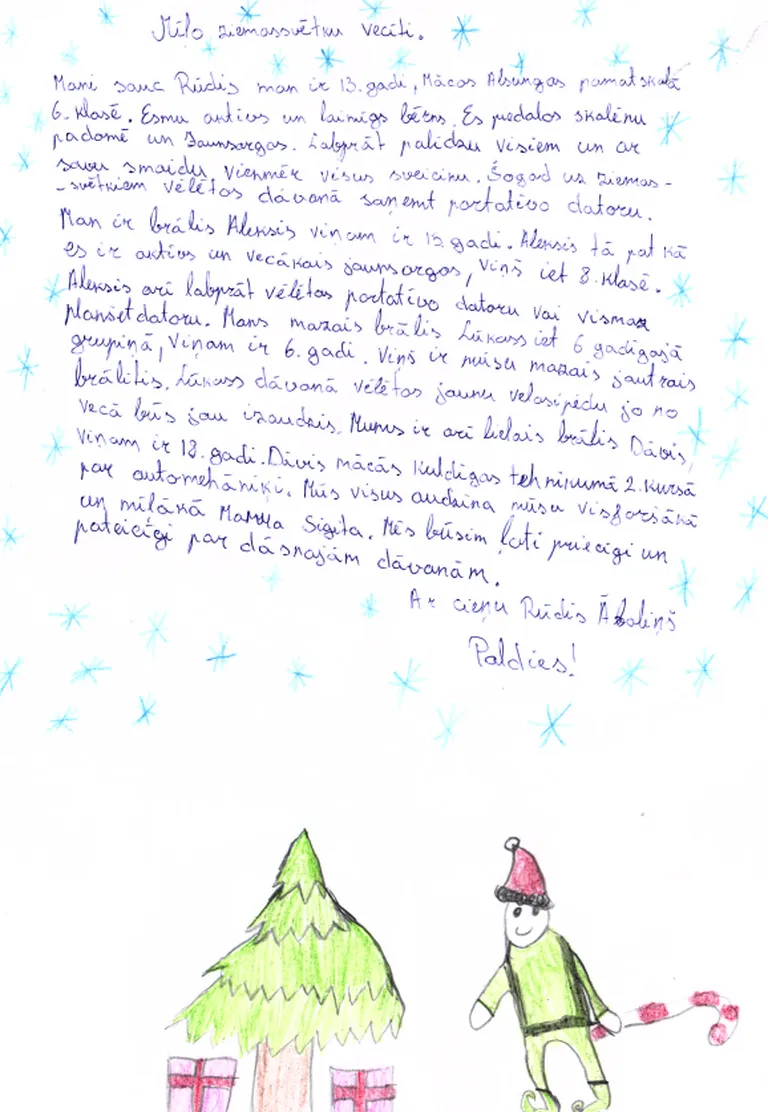 Mīļo ziemassvētku vecīti.
Mani sauc Rūdis man ir 13. gadi, Mācos Alsungas pamatskolā
6. klasē. Esmu aktīvs un laimīgs bērns. Es piedalos skolēnu
padomē un Jaunsargos. Labprāt palīdzu visiem un ar
savu smaidu, vienmēr visus sveicinu. Šogad uz ziemas-
-svētkiem vēlētos dāvanā saņemt portatīvo datoru.
Man ir brālis Aleksis viņam ir 15. gadi. Aleksis tā pat kā
es ir aktīvs un vecākais jaunsargos, viņš iet 8. klasē.
Aleksis arī labprāt vēlētos portatīvo datoru vai vismaz
planšetdatoru. Mans mazais brālis Lūkass iet 6 gadīgajā
grupiņā, Viņam ir 6. gadi. Viņš ir mūsu mazais jautrais
brālītis. Lūkass dāvanā vēlētos jaunu velosipēdu jo no
vecā būs jau izaudzis. Mums ir arī lielais brālis Dāvis,
viņam ir 18. gadi. Dāvis mācās Kuldīgas tehnikumā 2. kursā
par automehāniķi. Mūs visus audzina mūsu visforšākā
un mīļākā Mamma Sigita. Mēs būsim ļoti priecīgi un
pateicīgi par dāsnajām dāvanām.
Ar cieņu Rūdis Āboliņš
Paldies!